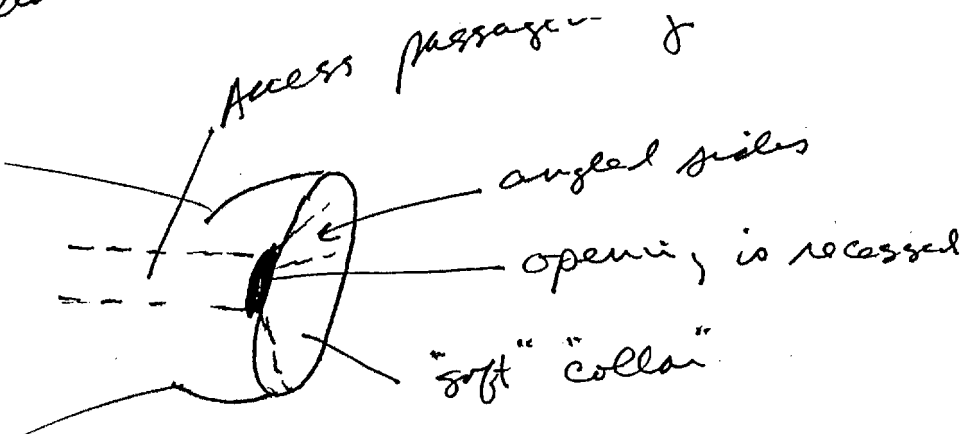 Access
angled sides
opening is recessed
"soft" "collar"